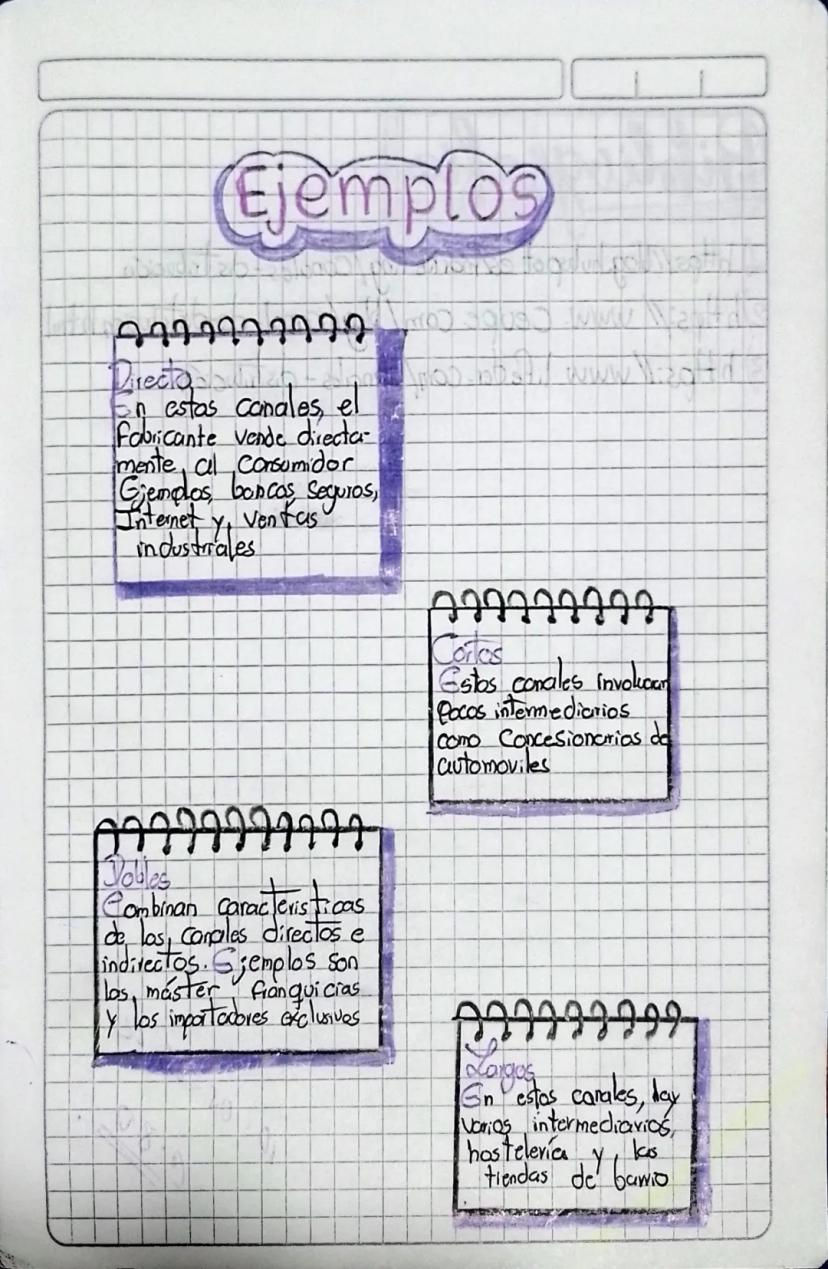 Ejemplos
Directo
En estos canales, el
fabricante vende directa-
mente al consumidor
Ejemplos, bancos, seguros,
Internet y ventas
industriales
Cortos
Estos canales involucan
pocos intermediarios
como Concesionarias de
automoviles
Dobles
Combinan características
de los canales directos e
indirectos. Ejemplos son
los máster franquicias
y los importadores exclusivos
Largos
En estos canales, hay
varios intermediarios,
hostelería y las
tiendas de barrio